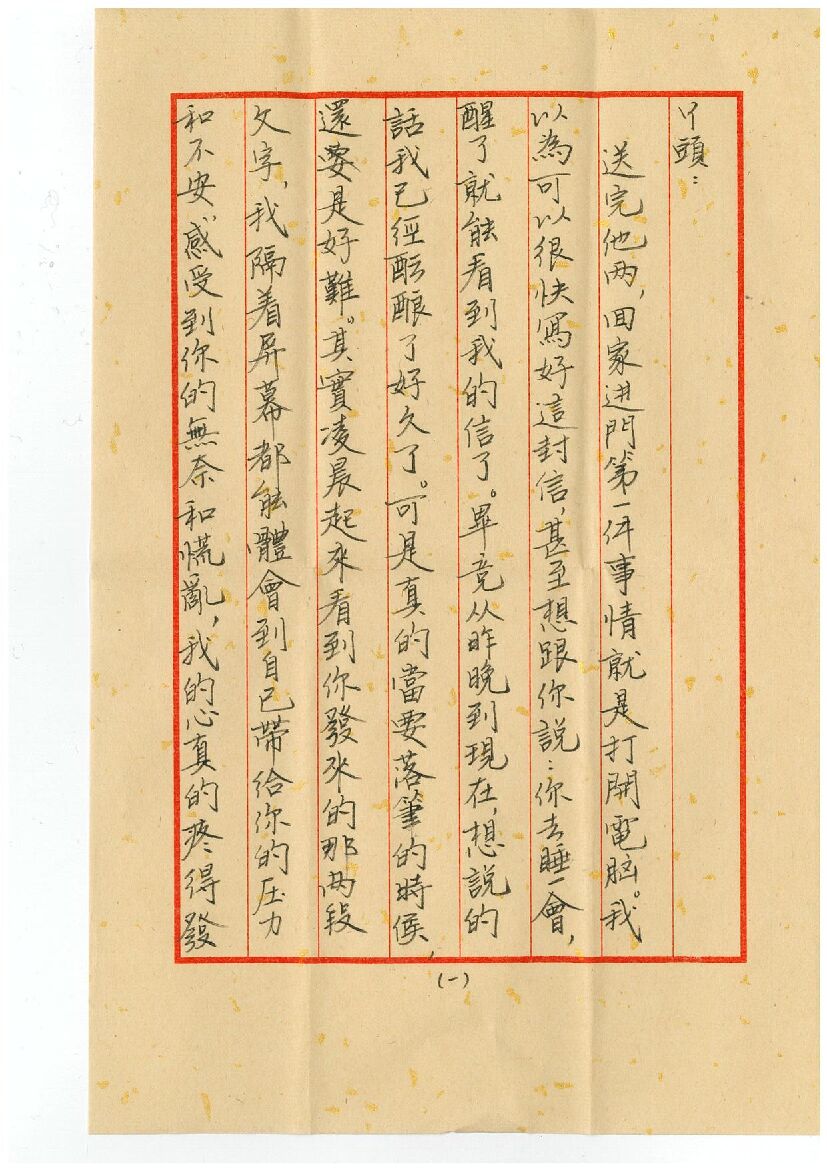 丫頭：
送完他两，回家进門第一件事情就是打開電脑。我
以為可以很快寫好這封信，甚至想跟你説：你去睡一會，
醒了就能看到我的信了。畢竟从昨晚到現在，想説的
話我已經酝酿了好久了。可是真的當要落筆的時候，
還要是好難。其實凌晨起來看到你發來的那两段
文字，我隔着屏幕都能體會到自己帶給你的压力
和不安。感受到你的無奈和慌亂，我的心真的疼得發
(一)